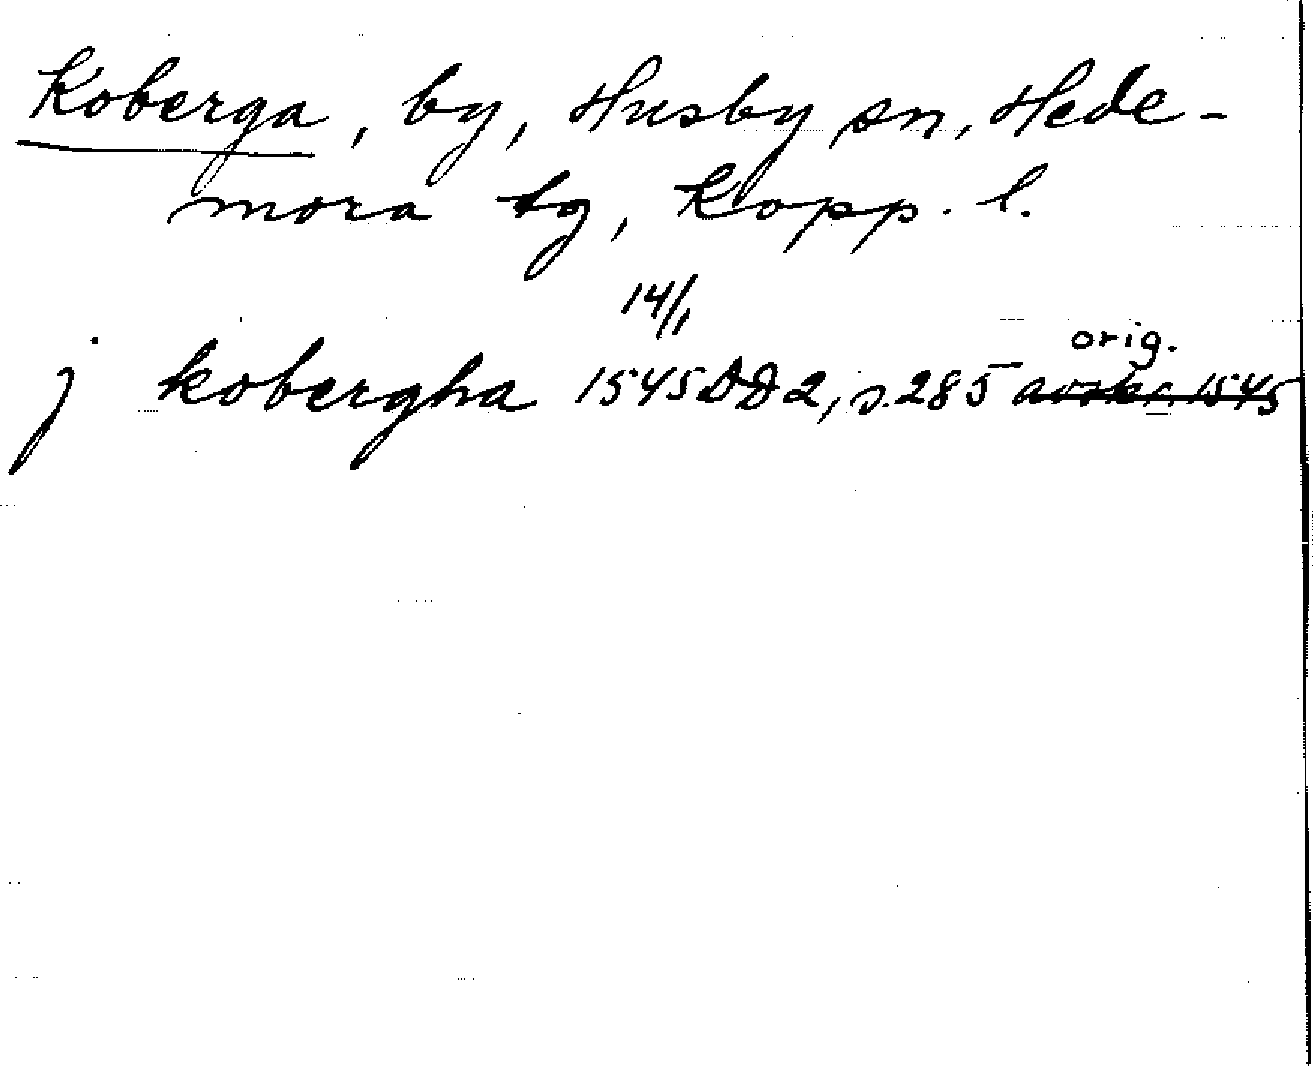 Koberga, by, Husby sn, Hede-
mora tg, Kopp. l.
14/1
orig.
j kobergha 1545 DD2, s. 285 avskr. 1545